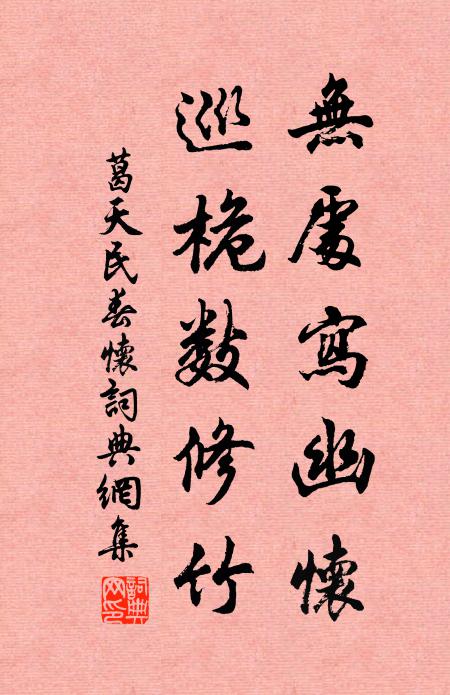 無處寫幽懷
巡桅數修竹
葛天民春懷詞典網集
詞典
网印